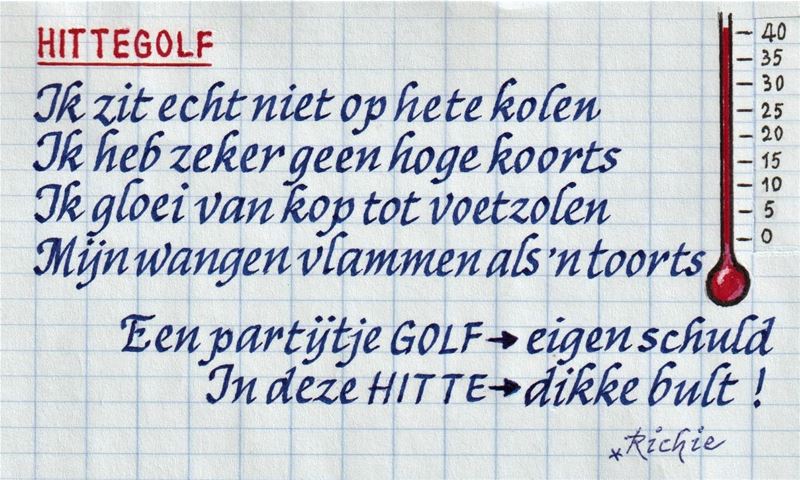 HITTEGOLF
Ik zit echt niet op hete kolen
Ik heb zeker geen hoge koorts
Ik gloei van kop tot voetzolen
Mijn wangen vlammen als 'n toorts
Een partijtje GOLF → eigen schuld
In deze HITTE → dikke bult !
*Richie
40
35
30
25
20
15
10
5
0